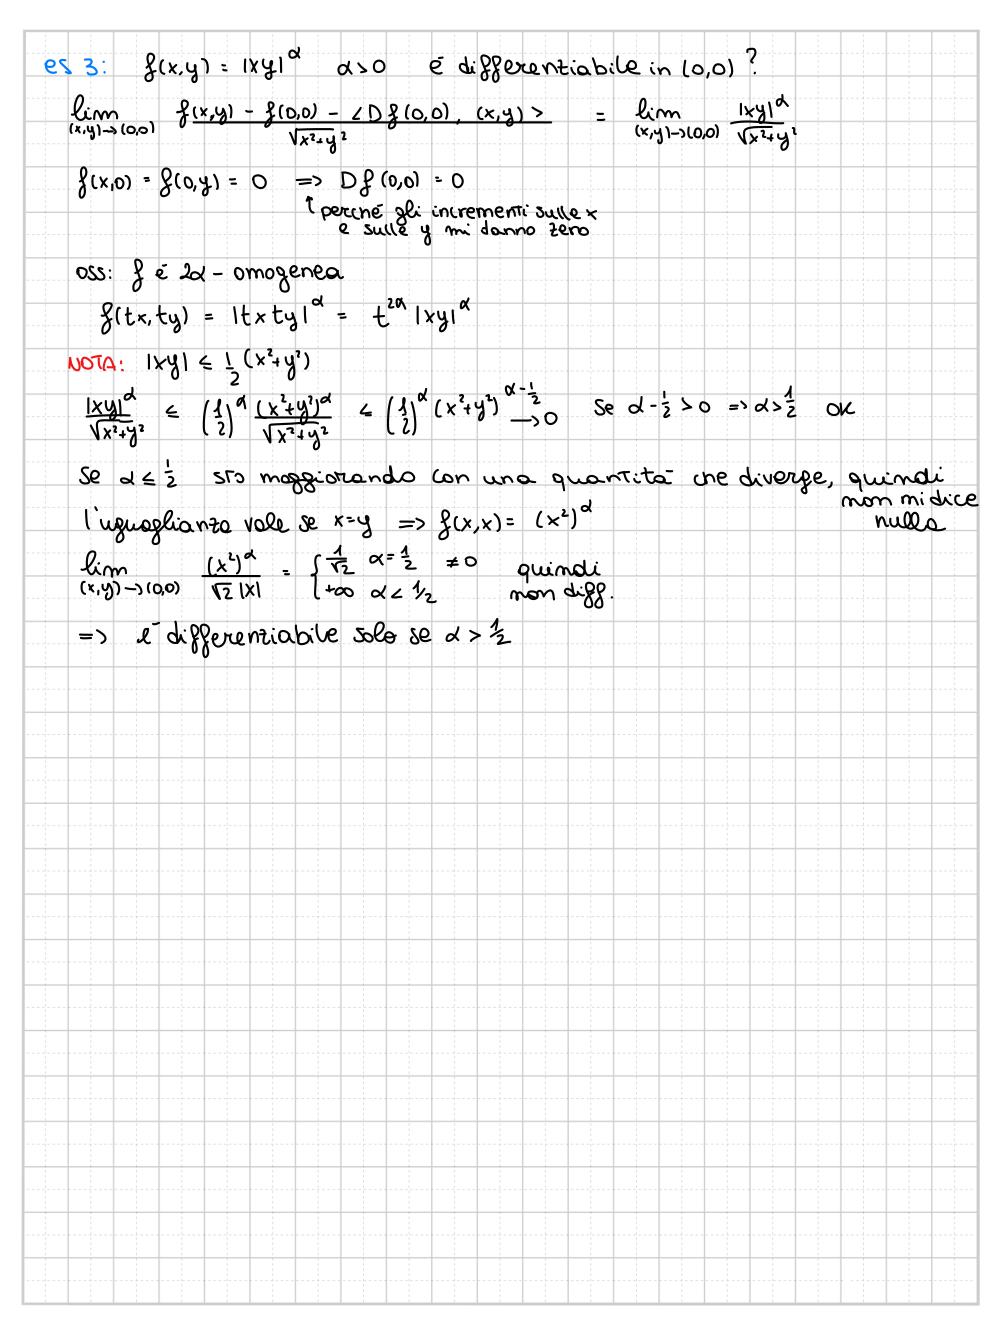 es 3: f(x,y) = |xy|^α α>0 é differenziabile in (0,0)?
lim (x,y)→(0,0) f(x,y) - f(0,0) - <Df(0,0), (x,y)> / √x²+y² = lim (x,y)→(0,0) |xy|^α / √x²+y²
f(x,0) = f(0,y) = 0 => Df(0,0) = 0
↑ perché gli incrementi sulle x
e sulle y mi danno zero
oss: f é 2α - omogenea
f(tx,ty) = |tx ty|^α = t^2α |xy|^α
NOTA: |xy| ≤ 1/2 (x²+y²)
|xy|^α / √x²+y² ≤ (1/2)^α (x²+y²)^α / √x²+y² ≤ (1/2)^α (x²+y²)^α-1/2 →0 se α-1/2 >0 => α>1/2 OK
Se α ≤ 1/2 sto maggiorando con una quantità che diverge, quindi
non mi dice
nulla
l'uguaglianza vale se x=y => f(x,x) = (x²)^α
lim (x,y)→(0,0) (x²)^α / √2 |x| = { 1/√2 α=1/2 ≠0
+∞ α< 1/2
quindi
non diff.
=> é differenziabile solo se α > 1/2